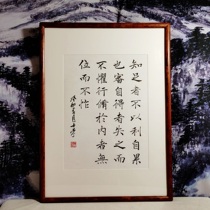 知足者不以利自累
也審自得者失之而
不懼行脩於内者無
位而不怍